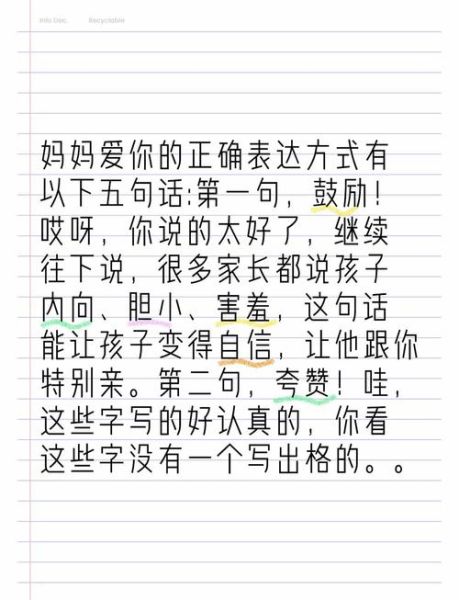 Info Doc. Recyclable
妈妈爱你的正确表达方式有
以下五句话:第一句，鼓励！
哎呀，你说的太好了，继续
往下说，很多家长都说孩子
内向、胆小、害羞，这句话
能让孩子变得自信，让他跟你
特别亲。第二句，夸赞！哇，
这些字写的好认真的，你看
这些字没有一个写出格的。。